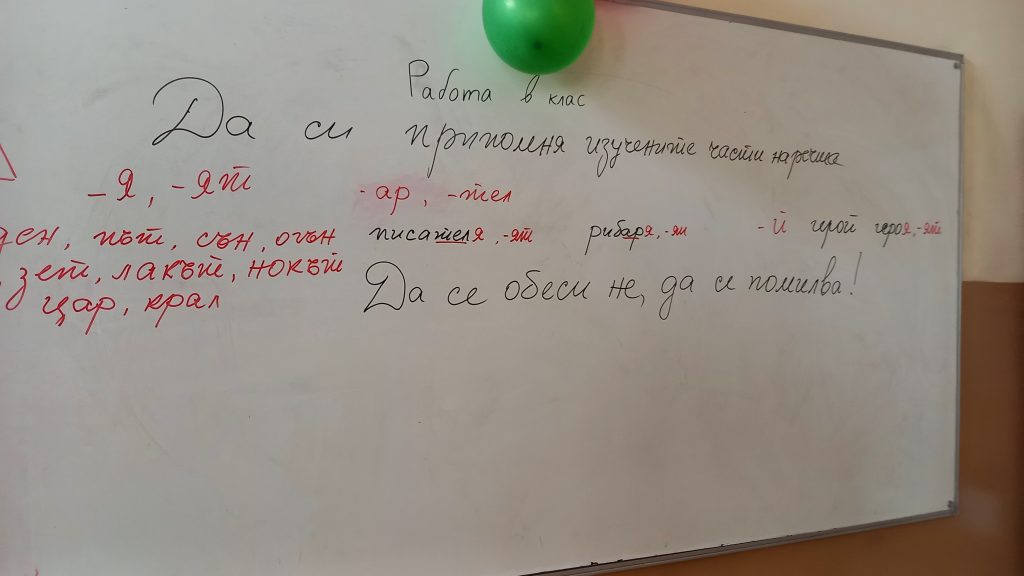 Работа в клас
Да си припомня изучените части на речта
-я, -ят
-ар, -тел
ден, път, сън, огън
зет, лакът, нокът
цар, крал
писателя, -ят рибаря, -ят -й герой героя, -ят
Да се обеси не, да се помилва!